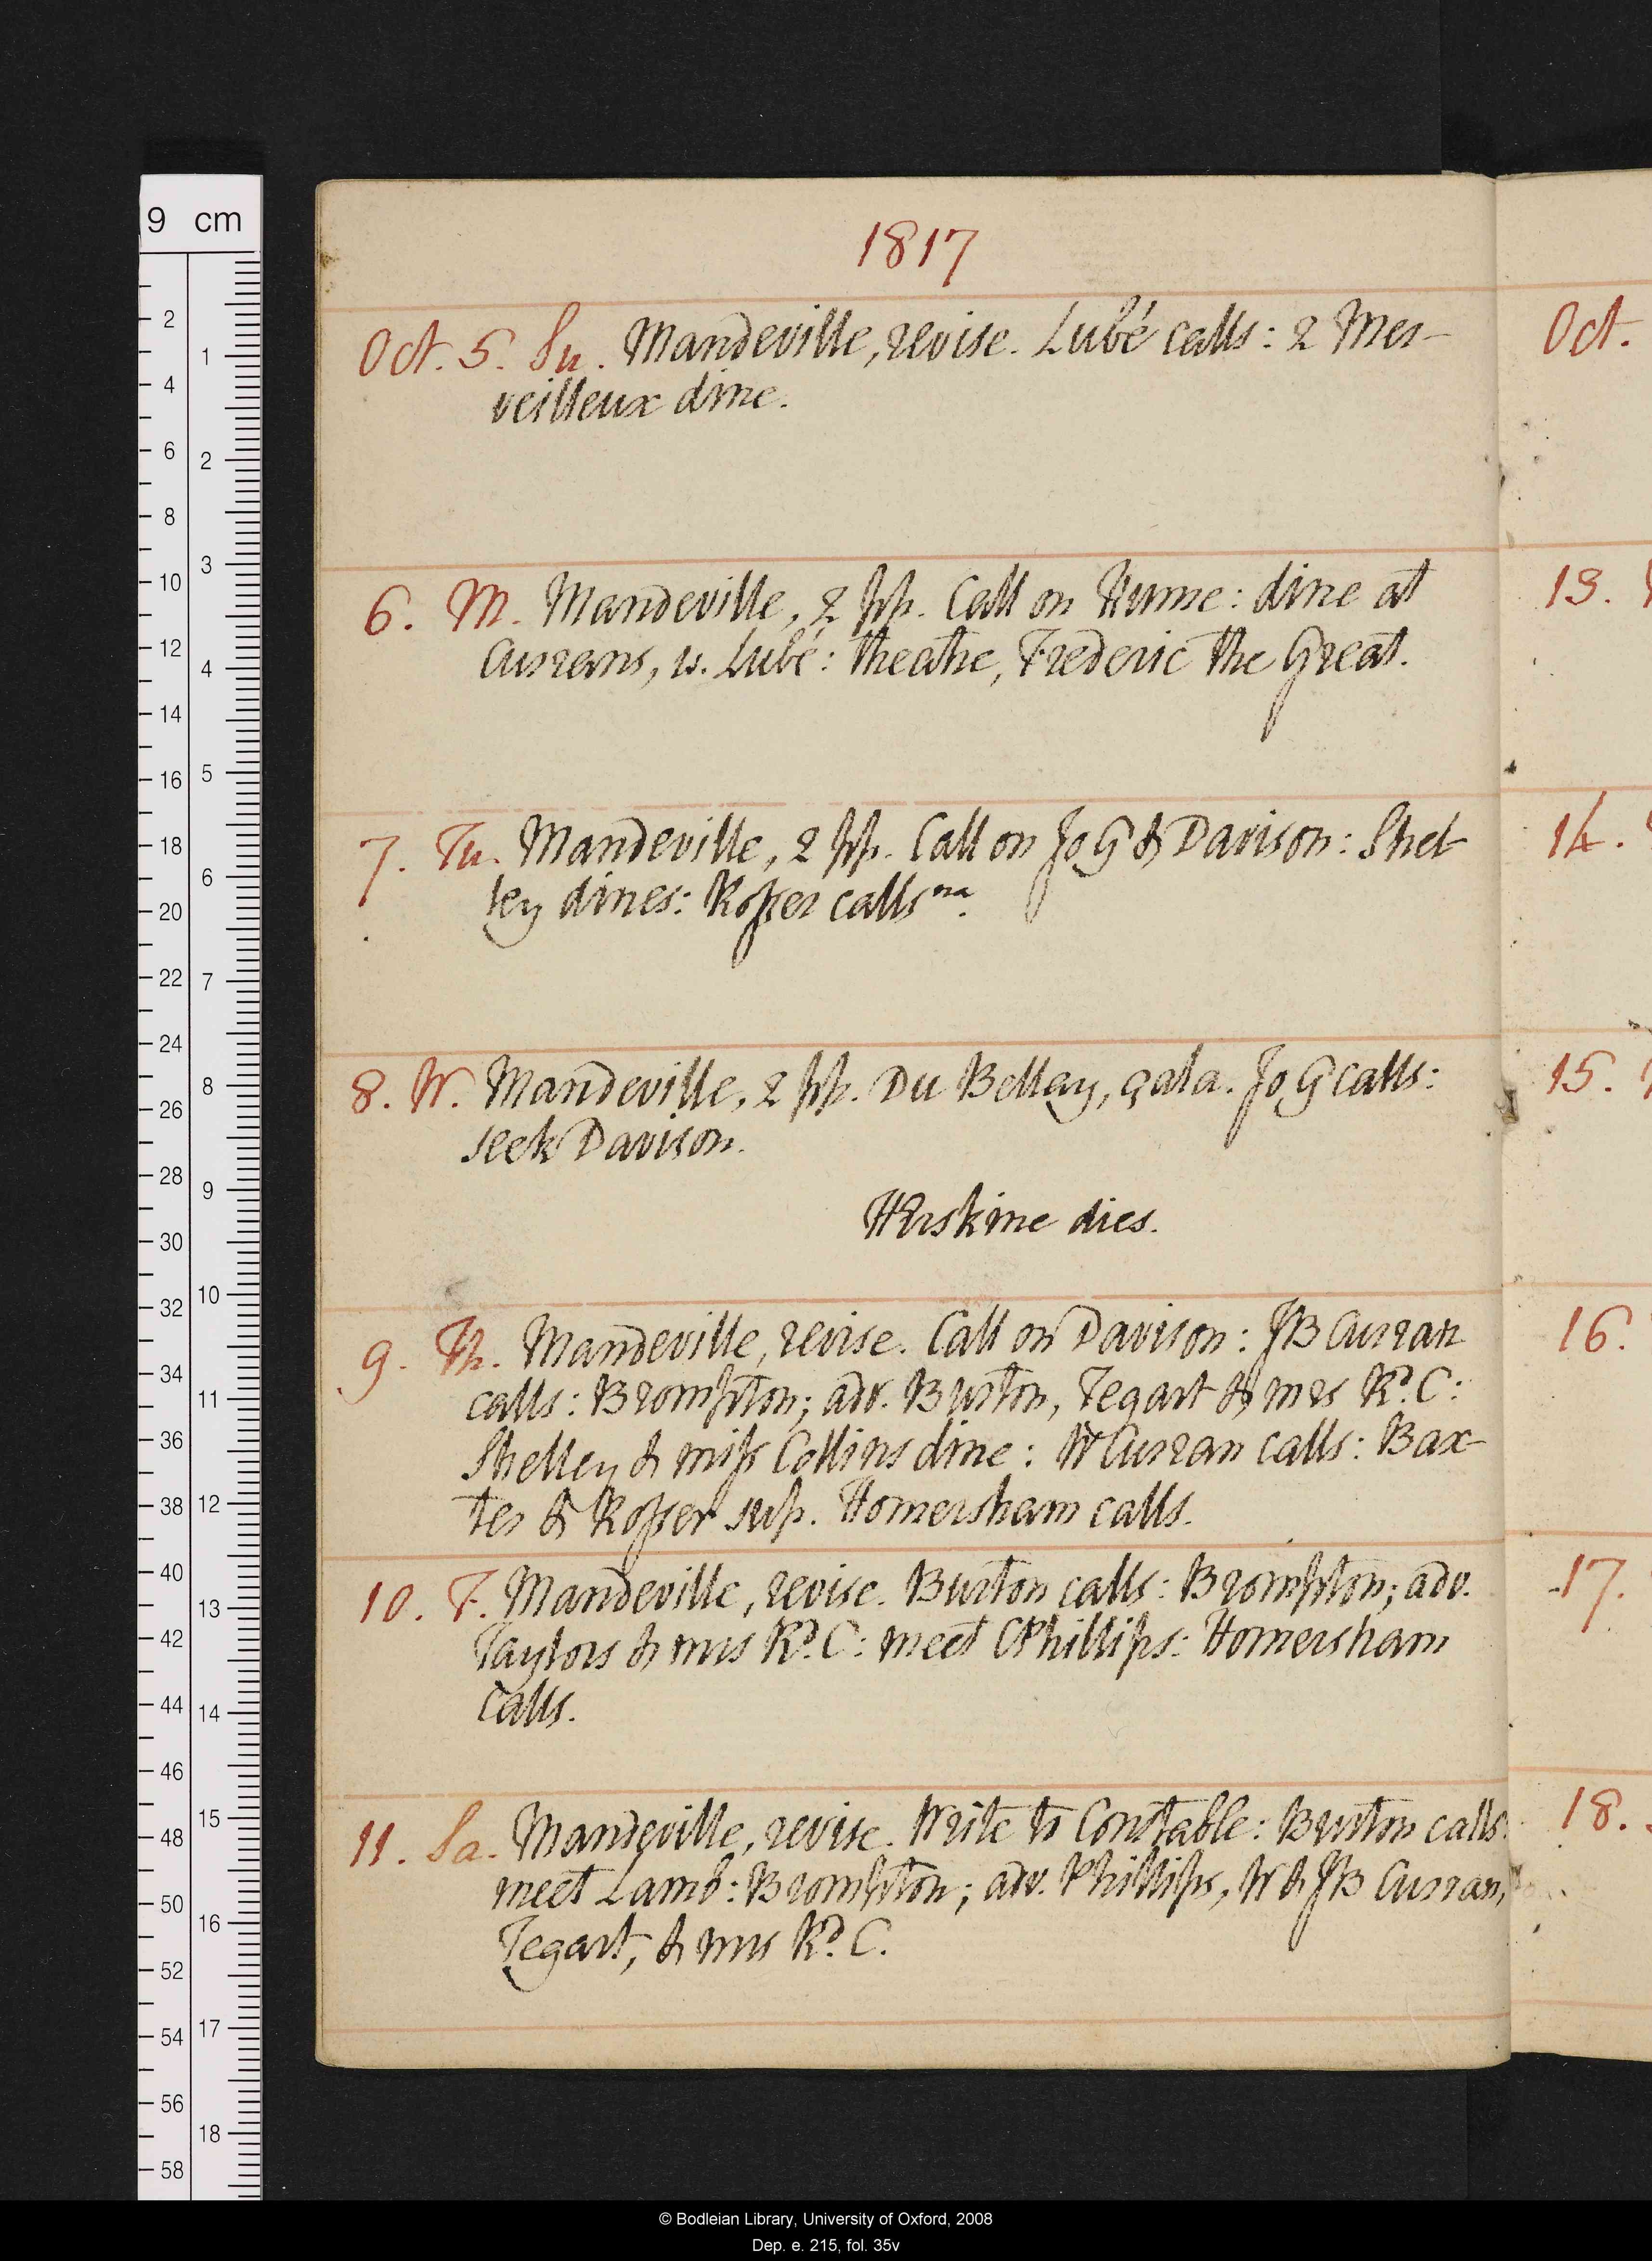 9 cm
1817
Oct. 5. Su. Mandeville, revise. Lubé calls: 2 Mer-
veilleux dine.
6. M. Mandeville, 2 pp. Call on Hume: dine at
Currans, w. Lubé: theatre, Frederic the Great.
7. Tu. Mandeville, 2 pp. Call on Jo G & Davison: Shel-
ley dines: Rosser calls na.
8. W. Mandeville, 2 pp. Du Bellay, çala. Jo G calls:
seek Davison.
H Erskine dies.
9. Th. Mandeville, revise. Call on Davison: JB Curran
calls: Brompton; adv. Burton, Tegart & mrs Rd. C:
Shelley & miss Collins dine: W Curran calls: Bax-
ter & Rosser sup. Homersham calls.
10. F. Mandeville, revise. Burton calls: Brompton; adv.
Taylors & mrs Rd. C: meet C Phillips: Homersham
calls.
11. Sa. Mandeville, revise. Write to Constable: Burton calls:
meet Lamb: Brompton; adv. Phillips, W & JB Curran,
Tegart, & mrs Rd. C.
Oct.
13.
14.
15.
16.
17.
18.
© Bodleian Library, University of Oxford, 2008
Dep. e. 215, fol. 35v